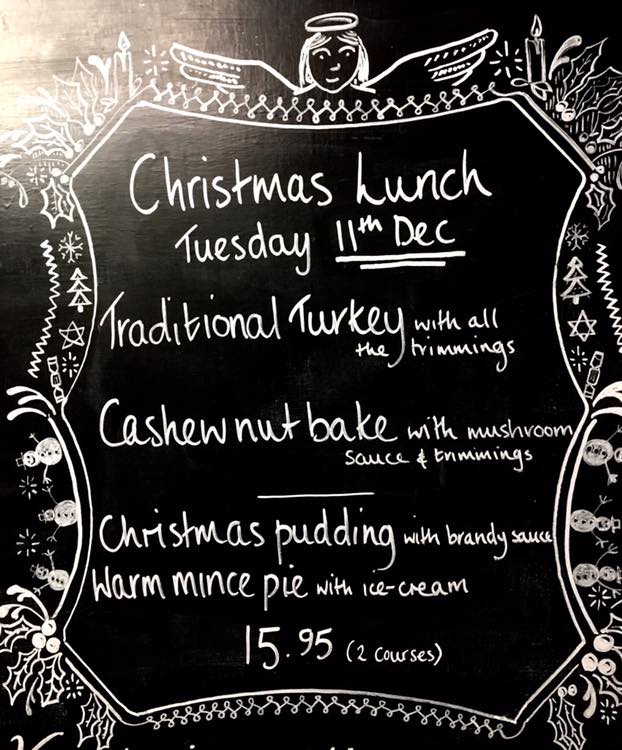 Christmas Lunch
Tuesday 11th Dec
Traditional Turkey with all
the trimmings
Cashew nut bake with mushroom
sauce & trimmings
Christmas pudding with brandy sauce
Warm mince pie with ice-cream
15.95 (2 courses)